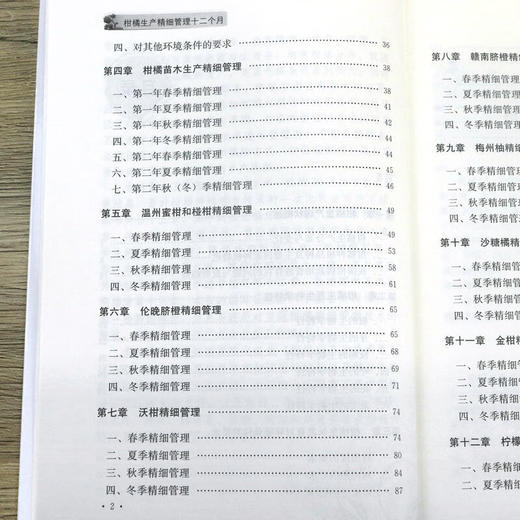 柑橘生产精细管理十二个月
四、对其他环境条件的要求 36
第四章 柑橘苗木生产精细管理 38
一、第一年春季精细管理 38
二、第一年夏季精细管理 41
三、第一年秋季精细管理 42
四、第一年冬季精细管理 44
五、第二年春季精细管理 44
六、第二年夏季精细管理 44
七、第二年秋（冬）季精细管理 46
第五章 温州蜜柑和椪柑精细管理 49
一、春季精细管理 49
二、夏季精细管理 53
三、秋季精细管理 58
四、冬季精细管理 61
第六章 伦晚脐橙精细管理 65
一、春季精细管理 65
二、夏季精细管理 68
三、秋季精细管理 69
四、冬季精细管理 71
第七章 沃柑精细管理 74
一、春季精细管理 74
二、夏季精细管理 80
三、秋季精细管理 84
四、冬季精细管理 87
· 2 ·
第八章 赣南脐橙精
一、春季精细管理
二、夏季精细管理
三、秋季精细管理
四、冬季精细管理
第九章 梅州柚精细
一、春季精细管
二、夏季精细管
三、秋季精细管
四、冬季精细管
第十章 沙糖橘精
一、春季精细管
二、夏季精细管
三、秋季精细
四、冬季精细
第十一章 金柑
一、春季精细
二、夏季精细
三、秋季精细
四、冬季精细
第十二章 柠檬
一、春季精
二、夏季精